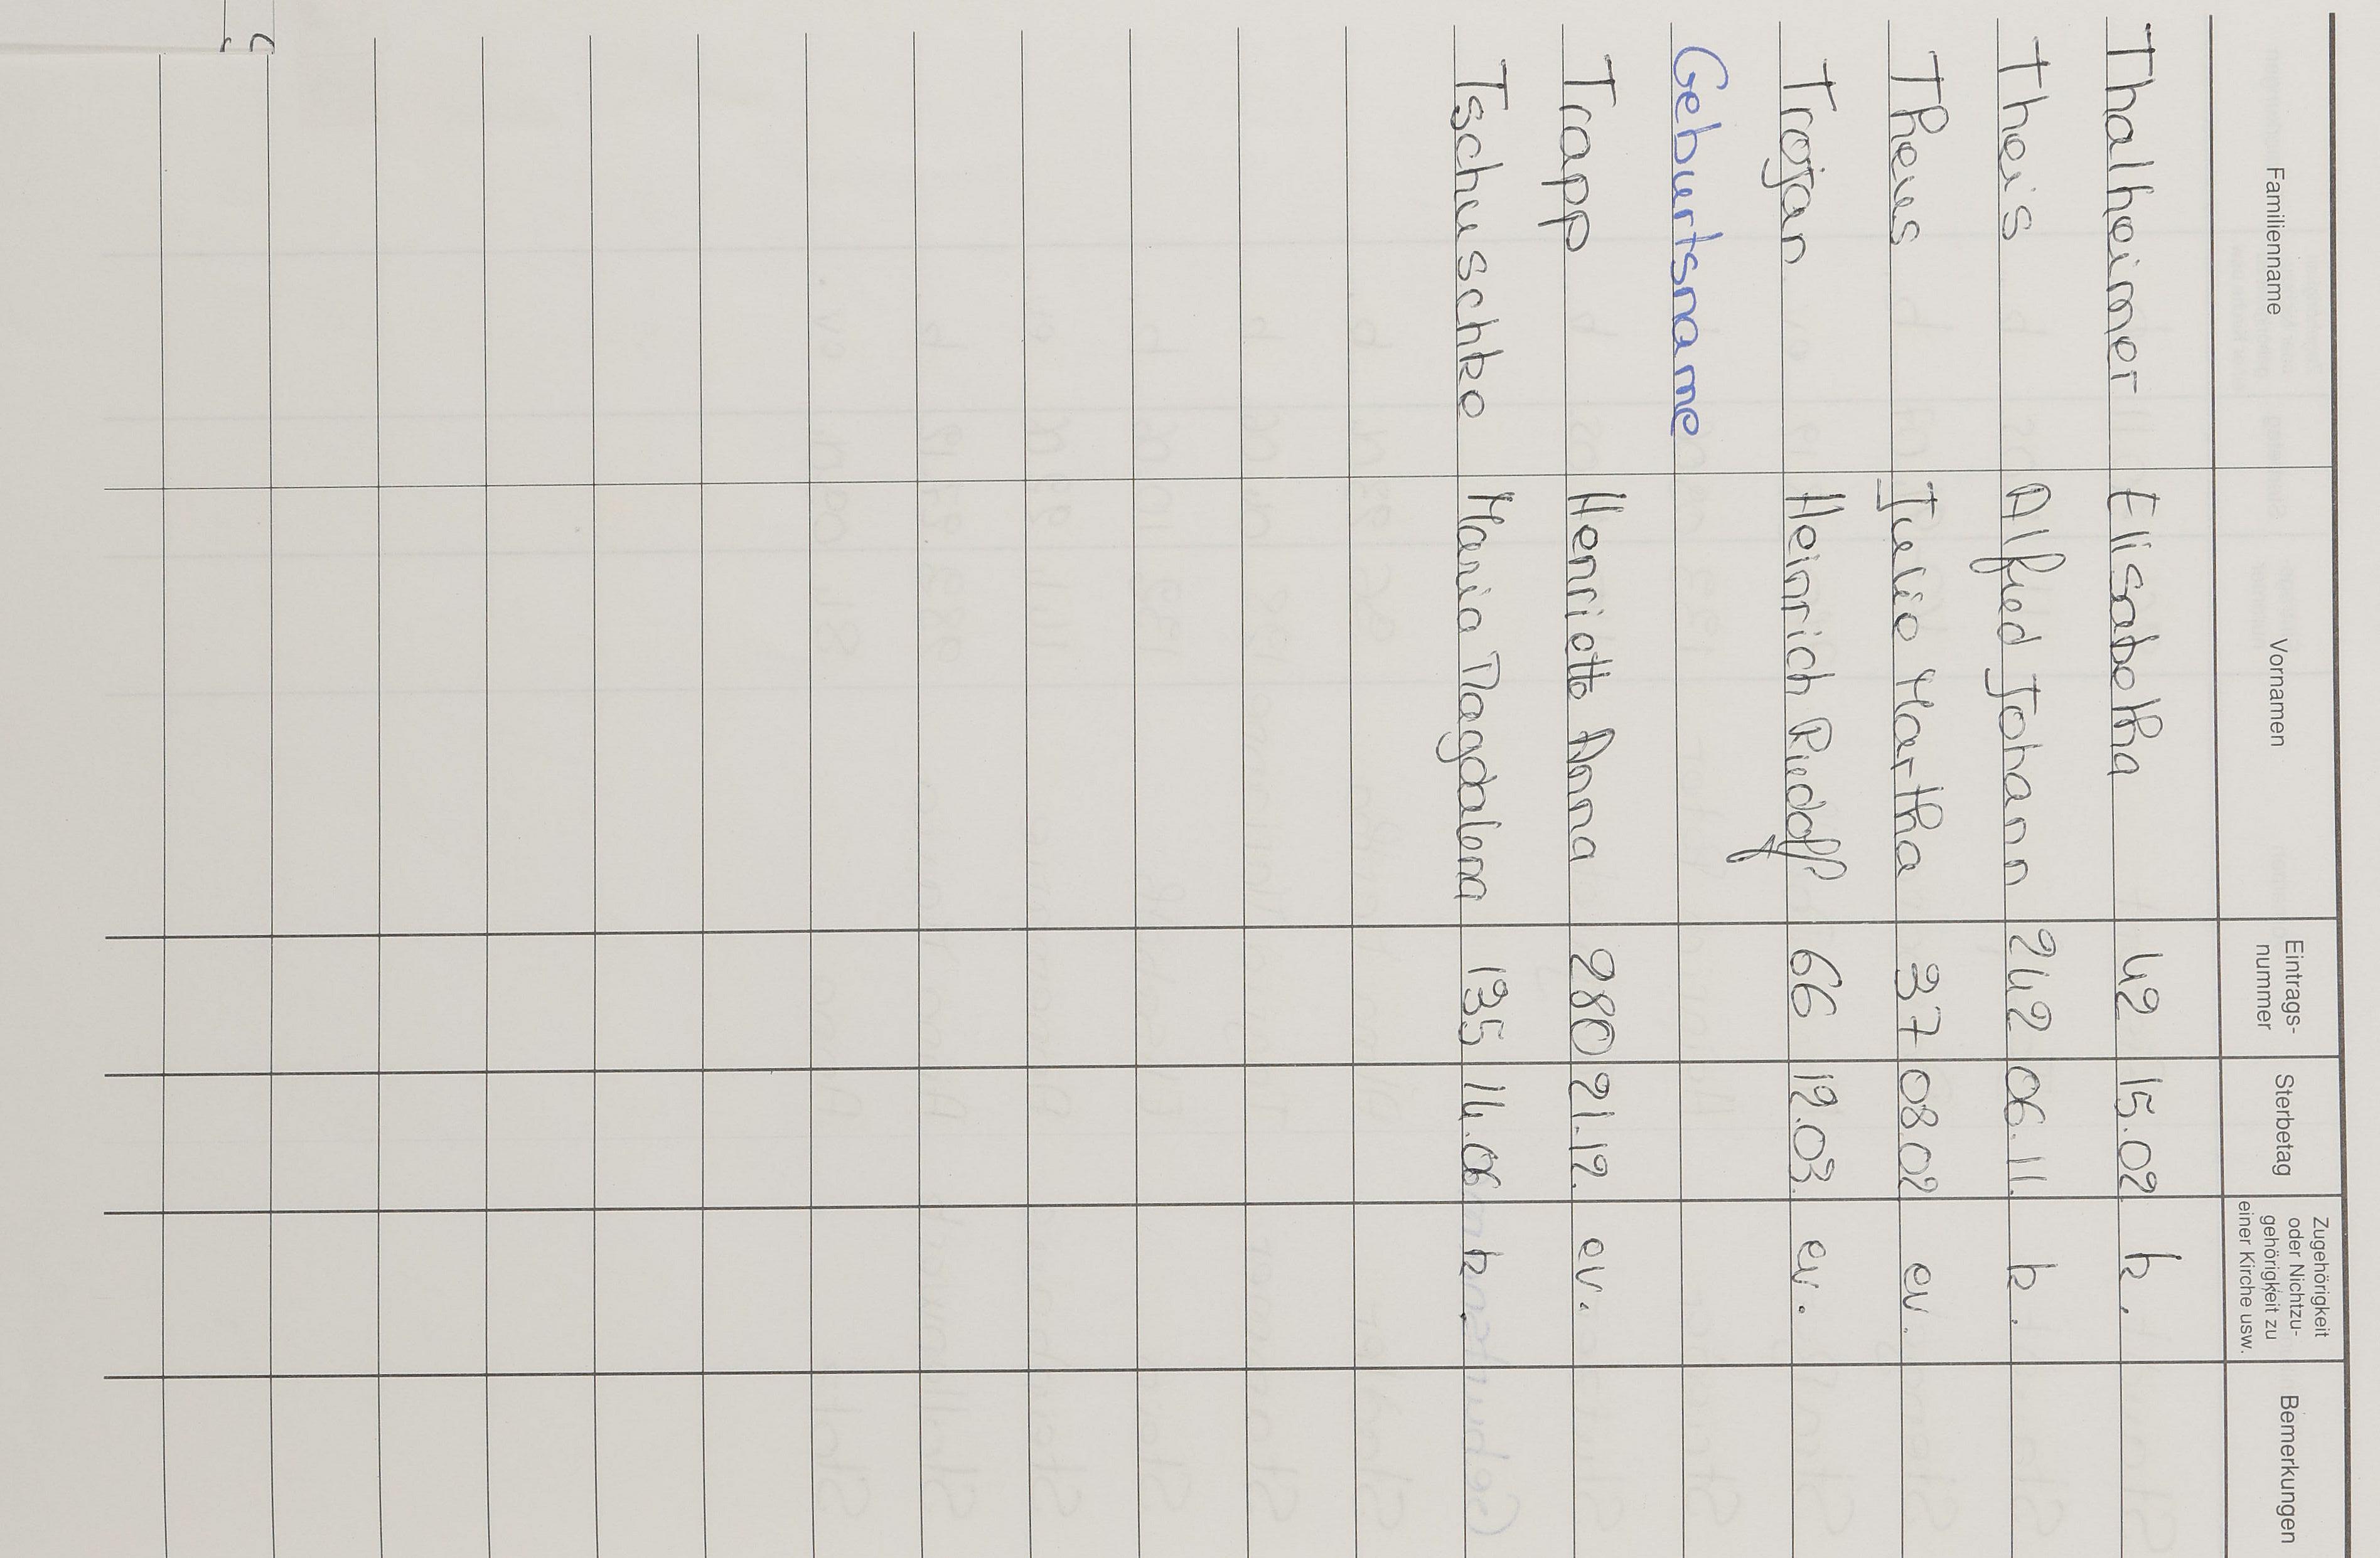 Familienname Vornamen Eintrags-nummer Sterbetag Zugehörigkeit oder Nichtzu-gehörigkeit zu einer Kirche usw. Bemerkungen
Thalheimer Elisabetha 42 15.02 k.
Theis Alfred Johann 242 06.11. k.
Theus Julie Martha 37 08.02 ev.
Trojan Heinrich Rudolf 66 12.03. ev.
Geburtsname
Trapp Henriette Anna 280 21.12. ev.
Tschuschke Maria Magdalena 135 14.06 k.